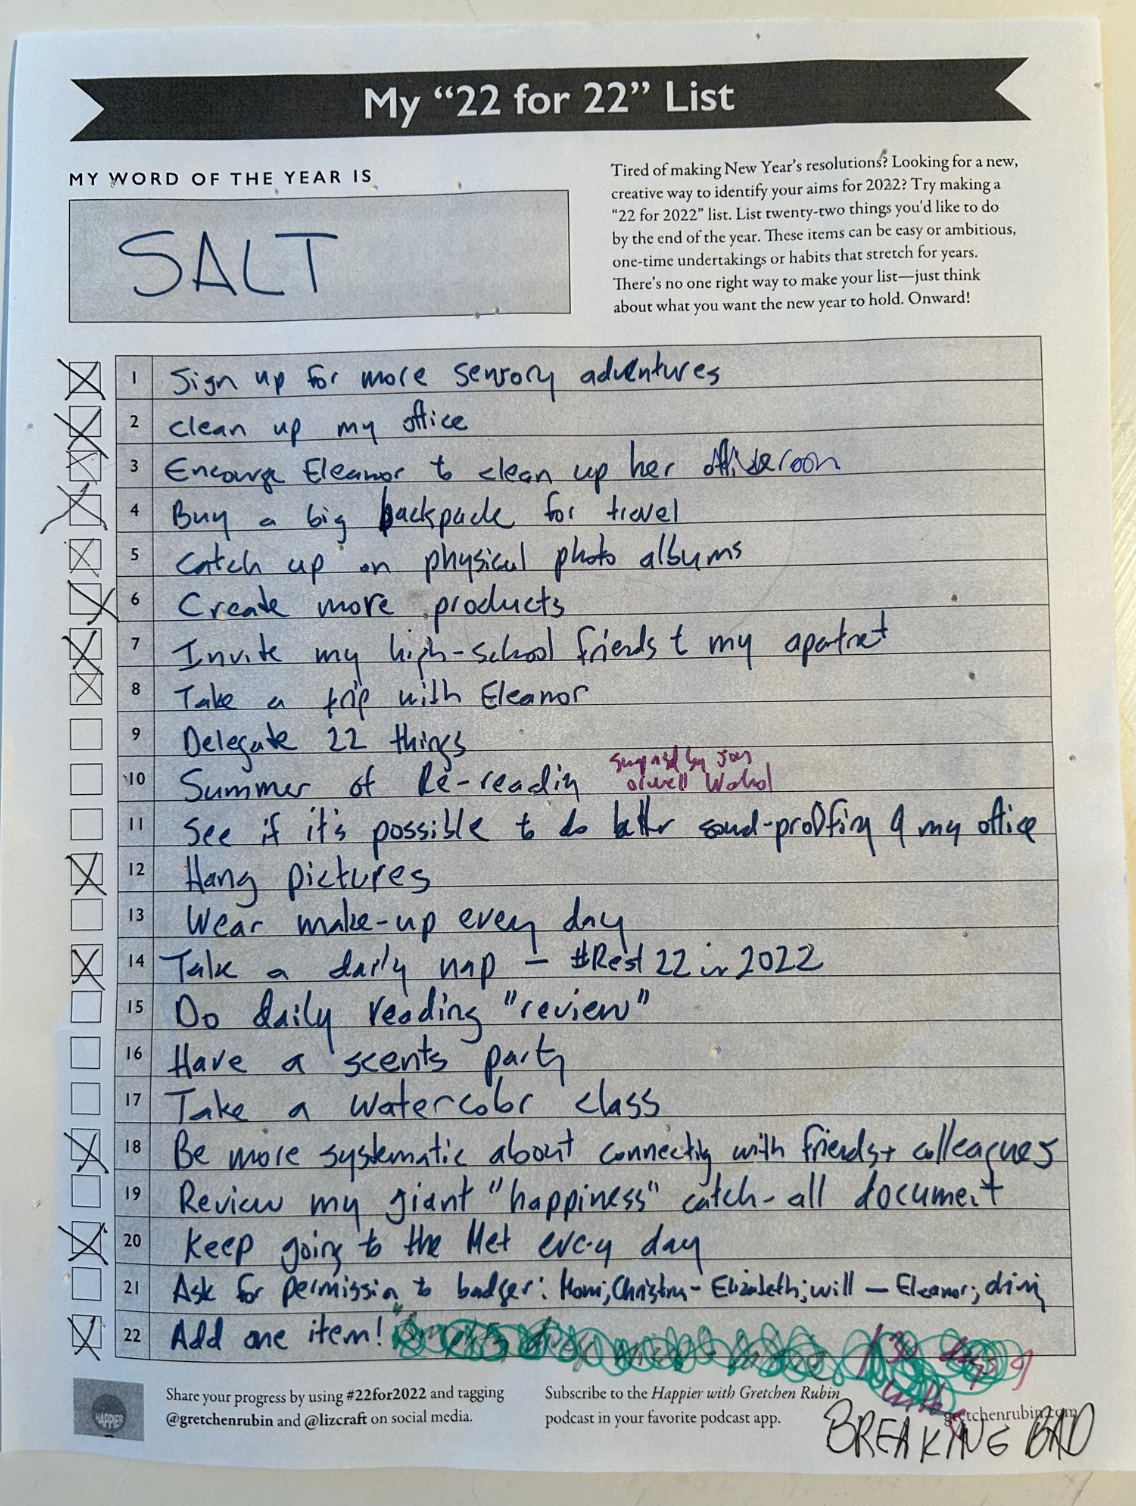 My “22 for 22” List
MY WORD OF THE YEAR IS
SALT
Tired of making New Year’s resolutions? Looking for a new,
creative way to identify your aims for 2022? Try making a
“22 for 2022” list. List twenty-two things you’d like to do
by the end of the year. These items can be easy or ambitious,
one-time undertakings or habits that stretch for years.
There’s no one right way to make your list—just think
about what you want the new year to hold. Onward!
1 Sign up for more sensory adventures
2 clean up my office
3 Encourge Eleanor to clean up her
4 Buy a big backpack for travel
5 Catch up on physical photo albums
6 Create more products
7 Invite my high-school friends t my
8 Take a trip with Eleanor
9 Delegate 22 things
10 Summer of Re-reading
by
11 See if it's possible to do better sound-proofing of my office
12 Hang pictures
13 Wear make-up every day
14 Take a daily nap – #Rest 22 in 2022
15 Do daily reading "review"
16 Have a scents party
17 Take a watercolor class
18 Be more systematic about connecting with friends + colleagues
19 Review my giant "happiness" catch-all document
20 Keep going to the Met every day
21 Ask for permission to badger: Mom; - Elizabeth; will – Eleanor;
22 Add one item!
30 days of
Share your progress by using #22for2022 and tagging
@gretchenrubin and @lizcraft on social media.
Subscribe to the Happier with Gretchen Rubin
podcast in your favorite podcast app.
gretchenrubin.com
HAPPIER
BREAKING BAD